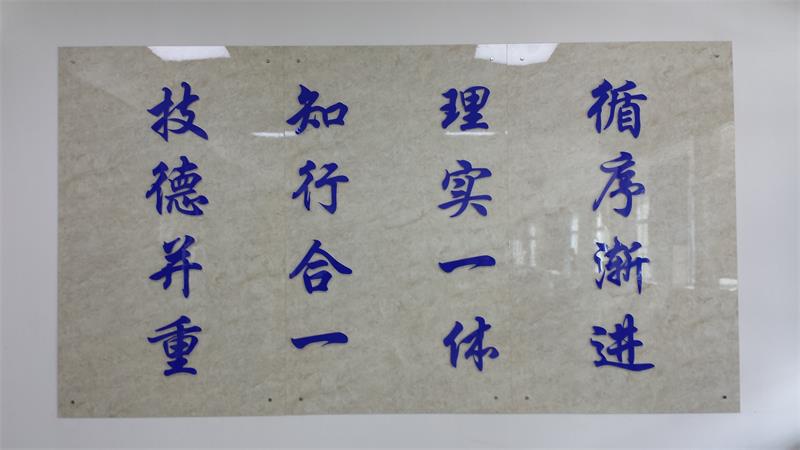 循序渐进
理实一体
知行合一
技德并重